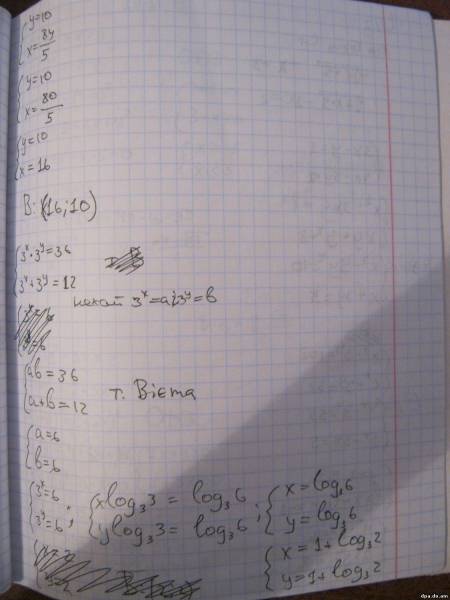 {y=10
x=8y/5
{y=10
x=80/5
{y=10
x=16
В: (16;10)
{3ˣ·3ʸ=36
3ˣ+3ʸ=12
нехай 3ˣ=a; 3ʸ=b
{ab=36
a+b=12
т. Вієта
{a=6
b=6
{3ˣ=6
3ʸ=6;
{xlog₃3 = log₃6
ylog₃3 = log₃6;
{x=log₃6
y=log₃6
{x=1+log₃2
y=1+log₃2
dpa.do.am